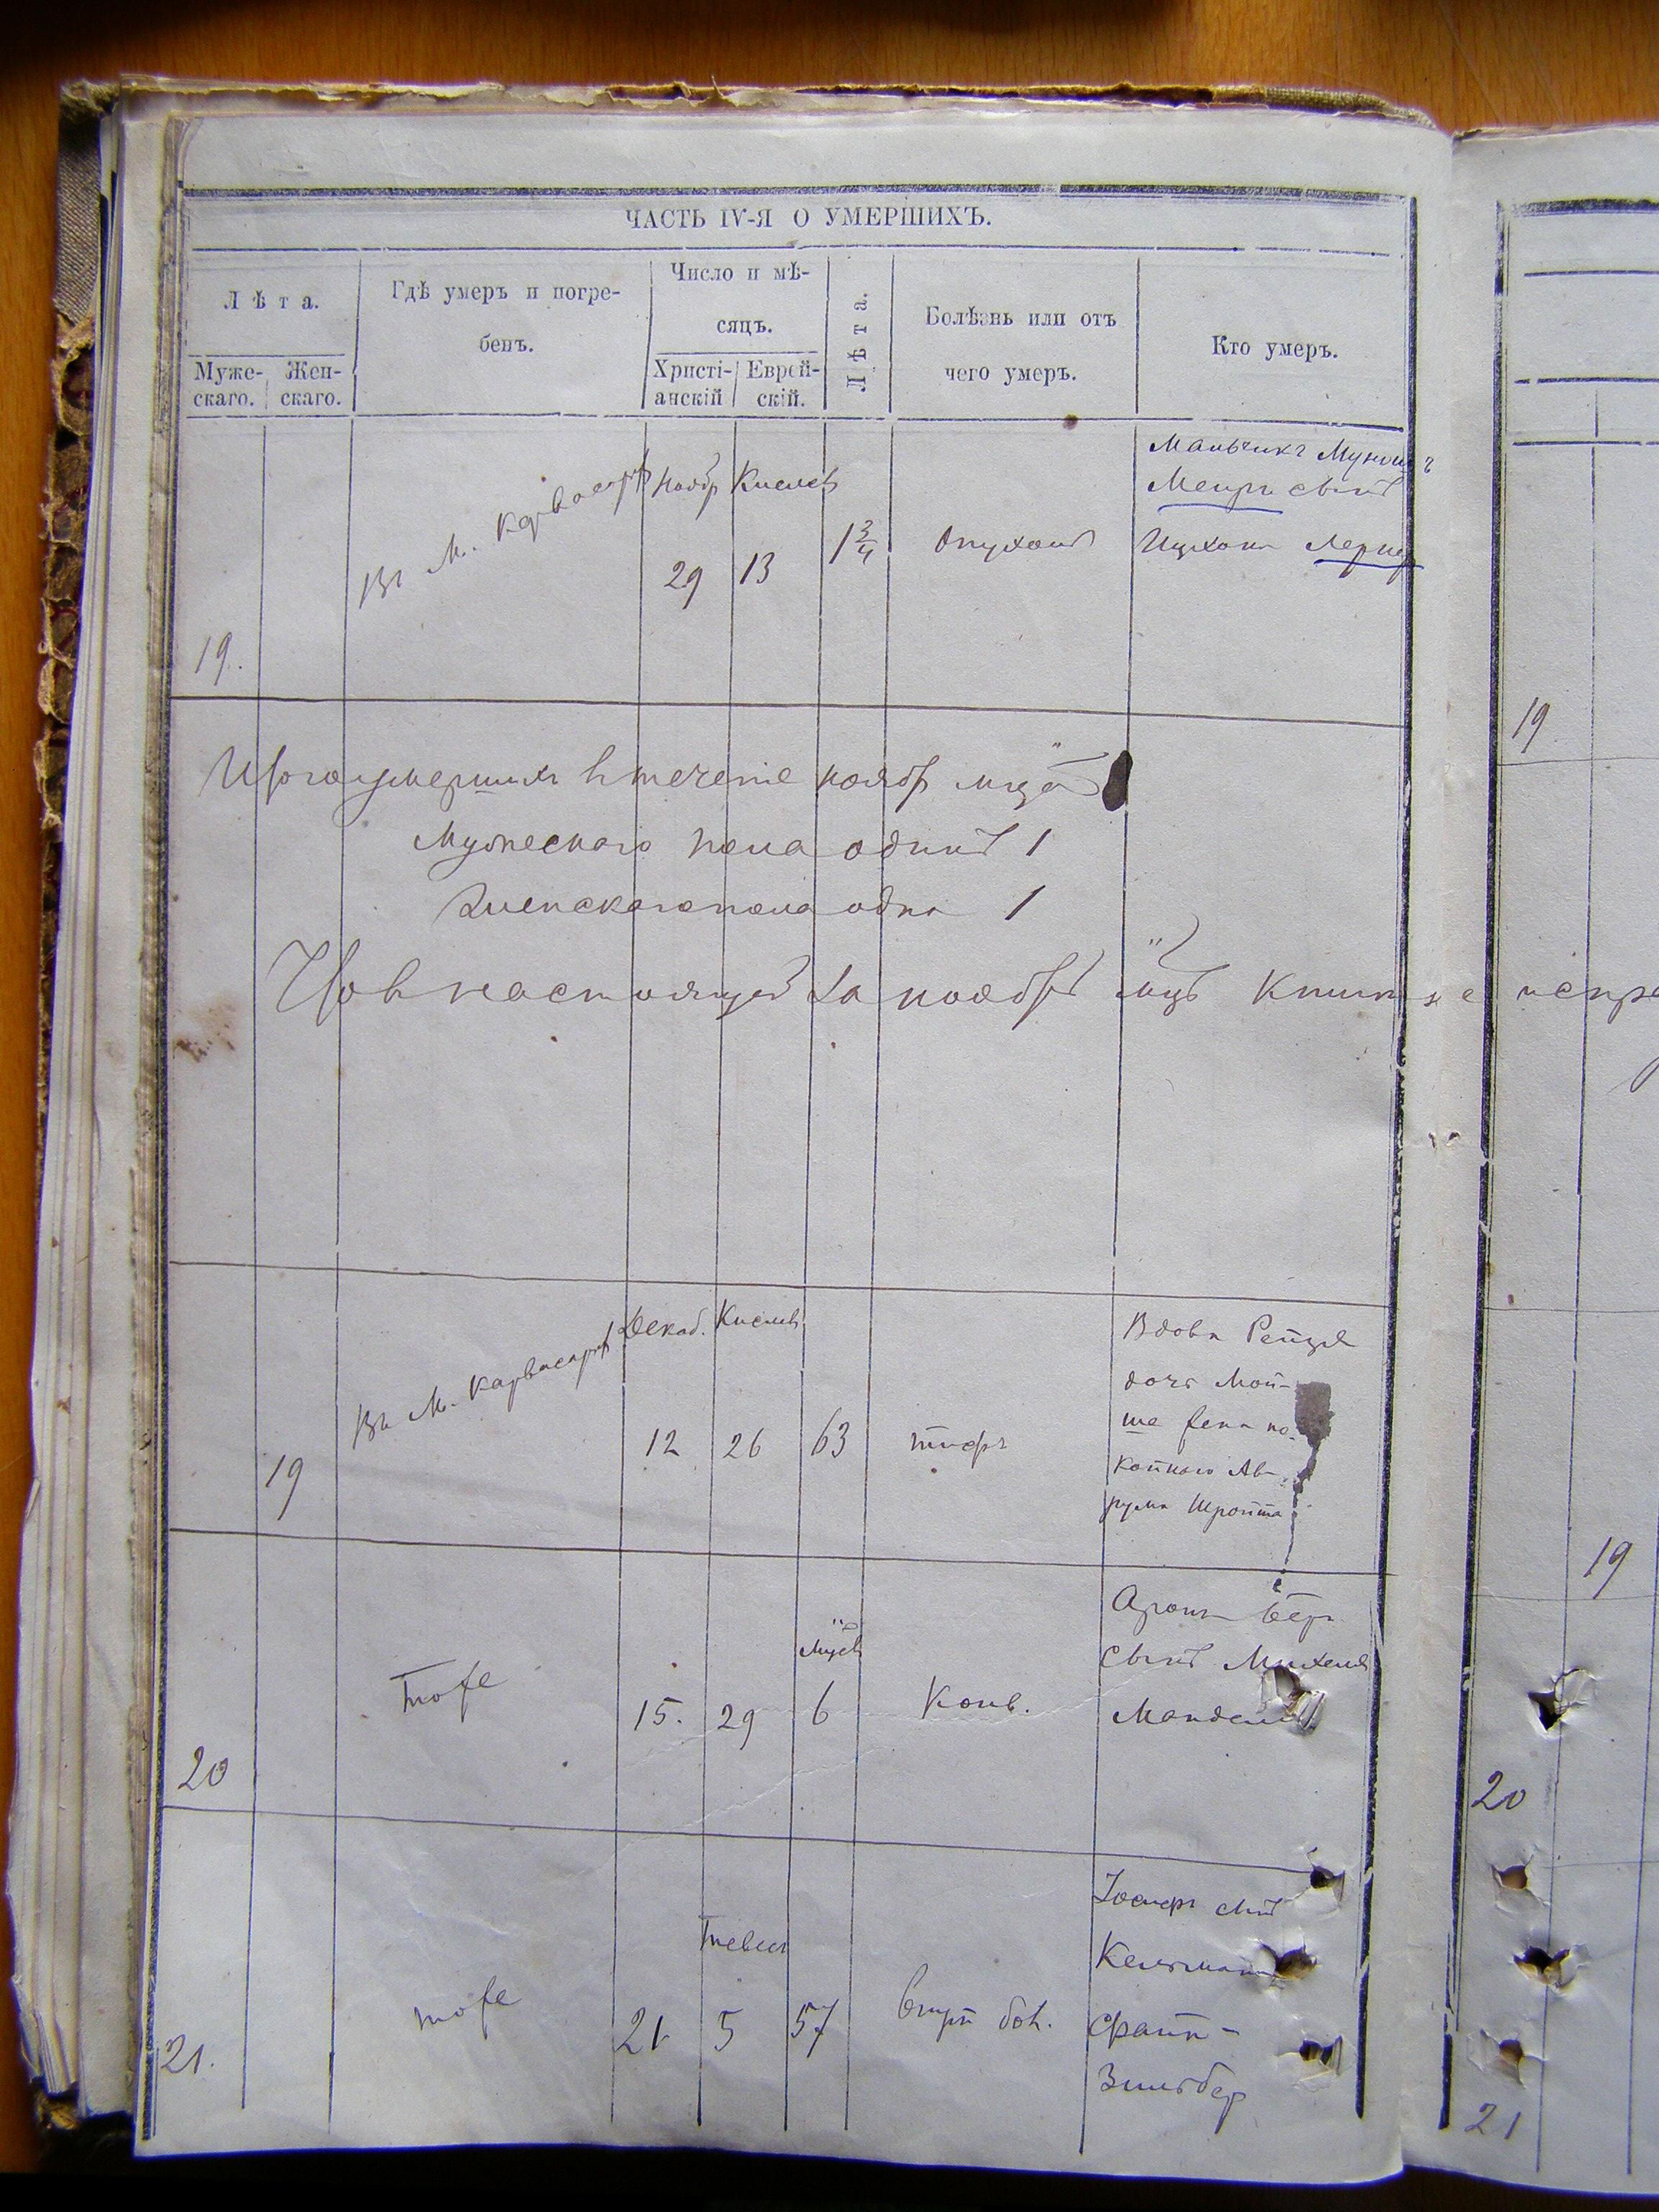 ЧАСТЬ IV-Я О УМЕРШИХЪ.
Лѣта.
Муже-
скаго.
Жен-
скаго.
Гдѣ умеръ и погре-
бенъ.
Число и мѣ-
сяцъ.
Христі-
анскій
Еврей-
скій.
Лѣта.
Болѣзнь или отъ
чего умеръ.
Кто умеръ.
19.
Въ М. Карвасары
Ноябр
29
Кислевъ
13
1 3/4
Опухоль
Мальчикъ
Меиръ сынъ
Ицхока Лернер
19
умершихъ в течение ноябр мца
Мужескаго пола одинъ 1
Женскаго пола одна 1
настоящей за ноябрь мцъ книгѣ
19
Въ М. Карвасары
Декаб.
12
Кислевъ
26
63
тифъ
Вдова Рейзя
дочь Мой-
ше жена по-
койнаго Ав-
рума Шройта
19
20
тоже
15.
29
мцев
6
Конв.
Аронъ Беръ
сынъ Михеля
20
21.
тоже
21
Тевесъ
5
57
внут бол.
Іосифъ сынъ
Кельмана
Файн-
Зильбер
21